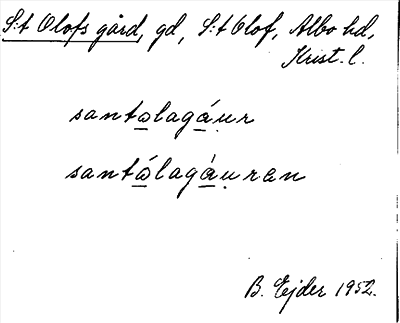 S:t Olofs gård, gd, S:t Olof, Albo hd,
Krist. l.
santo̲laga̲̋u̥r
santó̲lagá̲u̥ren
B. Ejder 1952.